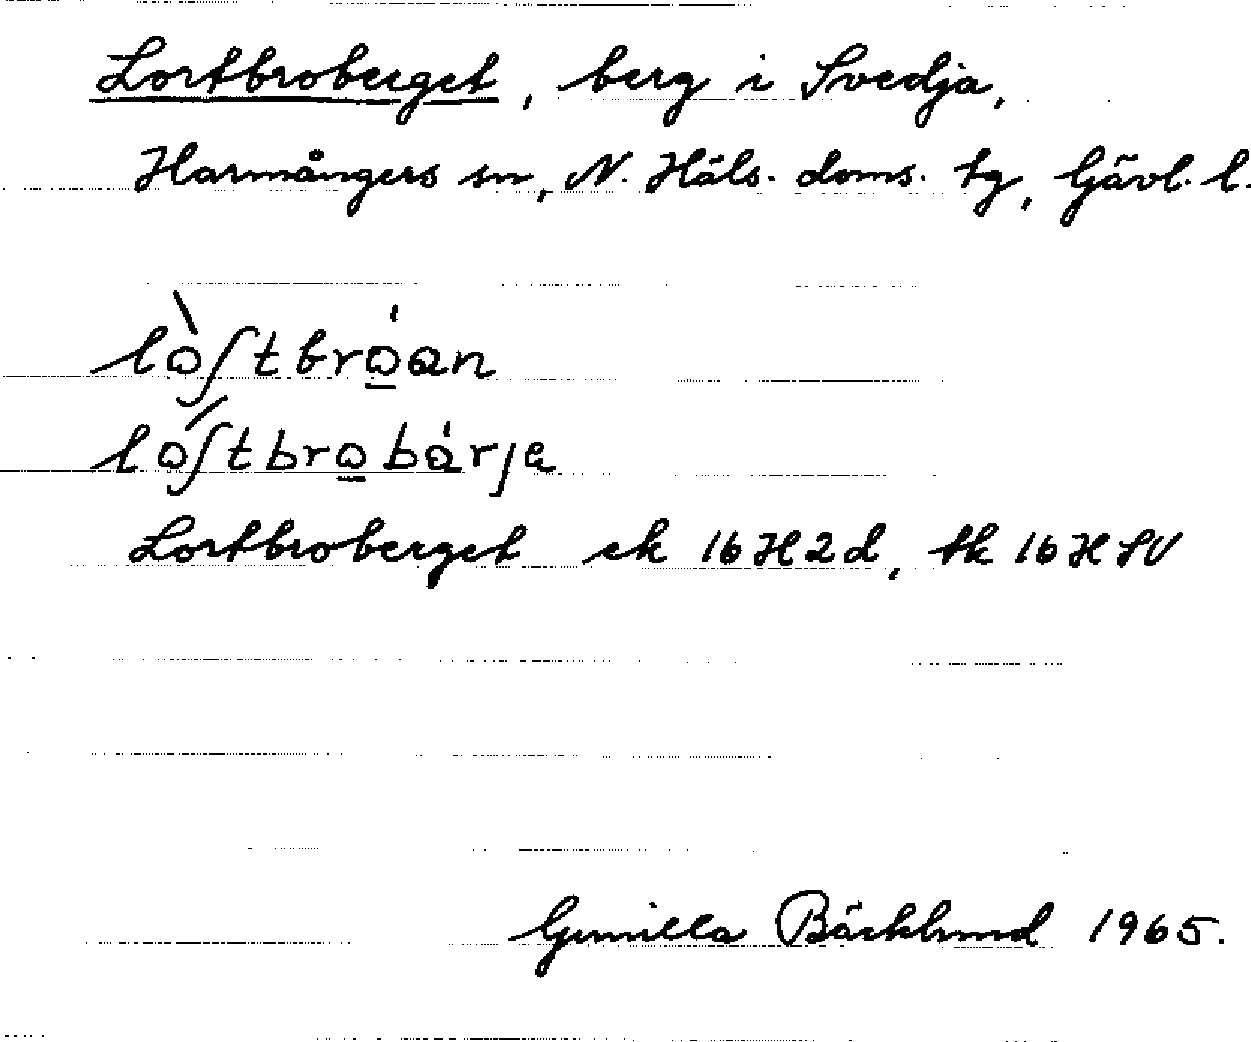 Lortbroberget, berg i Svedja,
Harmångers sn, N. Häls. doms. tg, Gävl. l.
lòʃtbróan
lóʃtbrobárja
Lortbroberget ek 16H2d, tk 16HSV
Gunilla Bäcklund 1965.